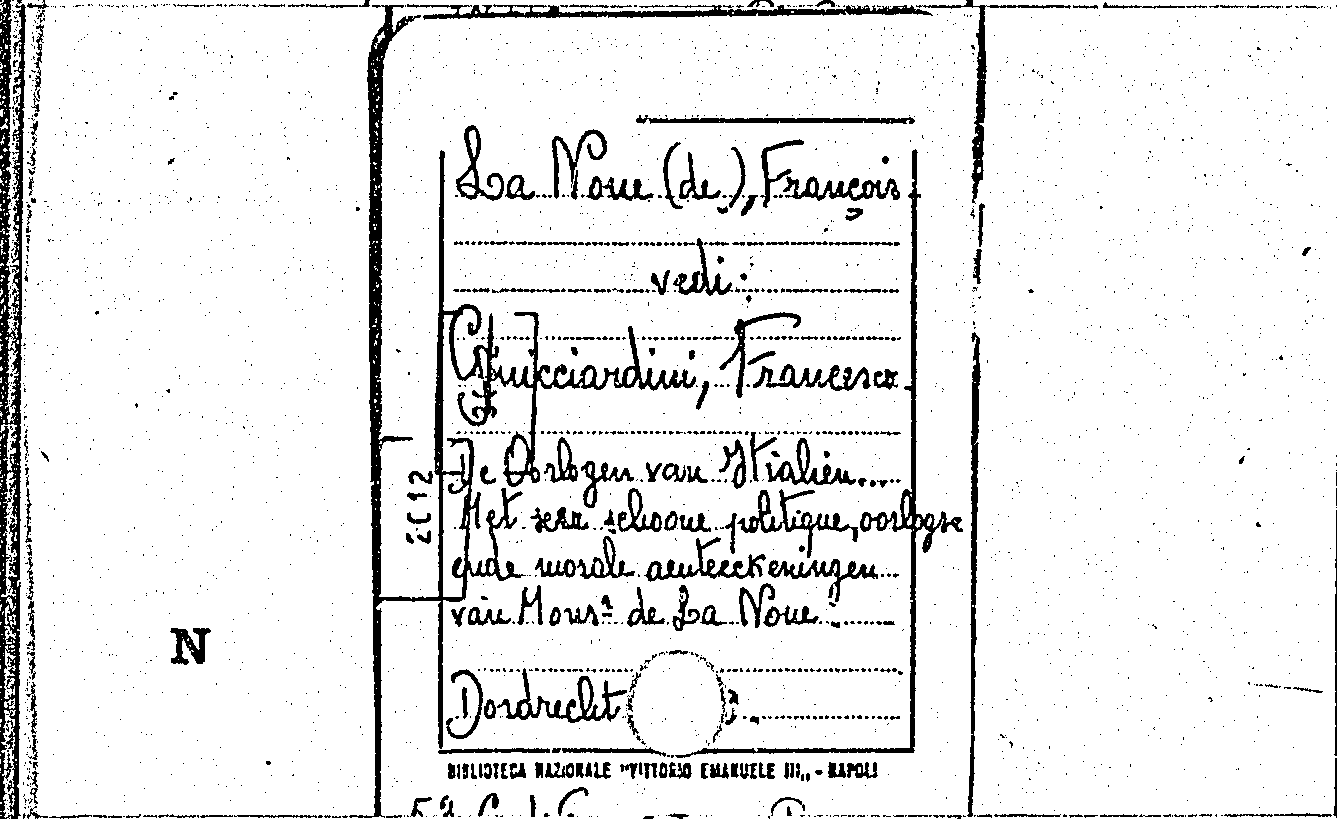 La Noue (de), François.
vedi:
Guicciardini, Francesco.
De Oorlogen van Italien....
Met seer schoone politique, oorlogse
ende morale aenteeckeningen
van Monsr de La Noue.
Dordrecht
BIBLIOTECA NAZIONALE "VITTORIO EMANUELE III,, - NAPOLI
N